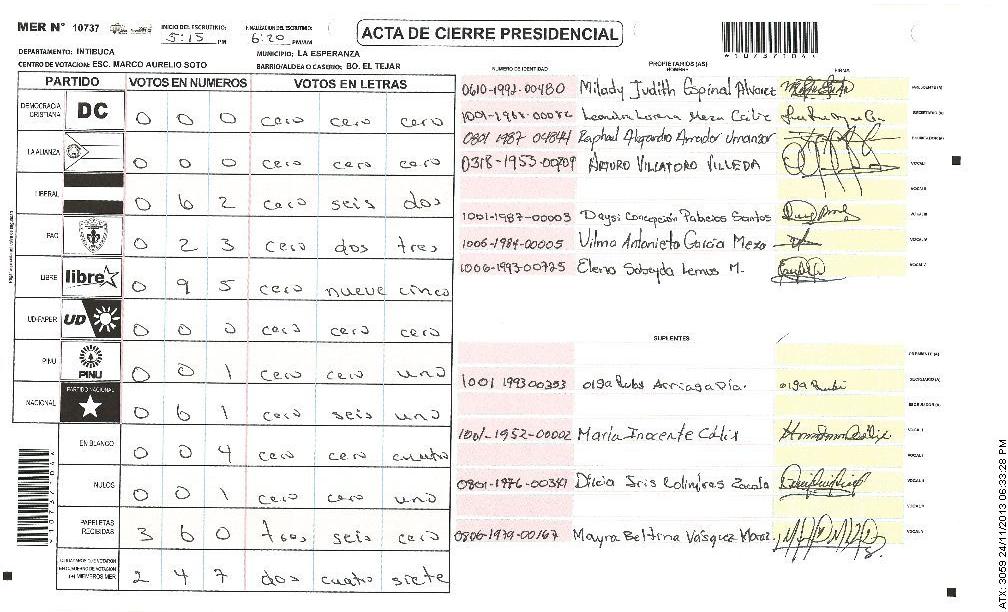 MER N° 10737
INICIO DEL ESCRUTINIO: 5:15 PM
FINALIZACION DEL ESCRUTINIO: 6:20 PM/AM
ACTA DE CIERRE PRESIDENCIAL
DEPARTAMENTO: INTIBUCA
MUNICIPIO: LA ESPERANZA
CENTRO DE VOTACION: ESC. MARCO AURELIO SOTO
BARRIO/ALDEA O CASERIO: BO. EL TEJAR
PARTIDO VOTOS EN NUMEROS VOTOS EN LETRAS
DEMOCRACIA CRISTIANA DC 0 0 0 cero cero cero
LA ALIANZA 0 0 0 cero cero cero
LIBERAL 0 6 2 cero seis dos
PAC 0 2 3 cero dos tres
LIBRE libre 0 9 5 cero nueve cinco
UD-FAPER UD 0 0 0 cero cero cero
PINU PINU 0 0 1 cero cero uno
NACIONAL PARTIDO NACIONAL 0 6 1 cero seis uno
EN BLANCO 0 0 4 cero cero cuatro
NULOS 0 0 1 cero cero uno
PAPELETAS RECIBIDAS 3 6 0 tres seis cero
(+) MIEMBROS MER 2 4 7 dos cuatro siete
NUMERO DE IDENTIDAD
PROPIETARIOS (AS)
NOMBRE
FIRMA
0610-1992-00480 Milady Judith Espinal Alvarez PRESIDENTE (A)
SECRETARIO (A)
0801 1987 Raphael Alejandro Amador Umanzor ESCRUTADOR (A)
0318-1953-00209 ARTURO VILLATORO VILLEDA VOCAL I
VOCAL II
1001-1987-00003 Daysi Concepción Palacios Santos VOCAL III
1006-1984-00005 Vilma Antonieta Garcia Meza VOCAL IV
1006-1993-00725 Elena Sobeyda Lemus M. VOCAL V
SUPLENTES
PRESIDENTE (A)
1001 1993 00353 olga Rubi SECRETARIO (A)
ESCRUTADOR (A)
1001-1952-00002 María Inocente Cálix VOCAL I
VOCAL II
0801-1976-00341 Dilcia Iris VOCAL III
VOCAL IV
0806-1979-00167 Mayra Bettina Vásquez VOCAL V
*107371044*
ATX: 3059 24/11/2013 06:33:28 PM